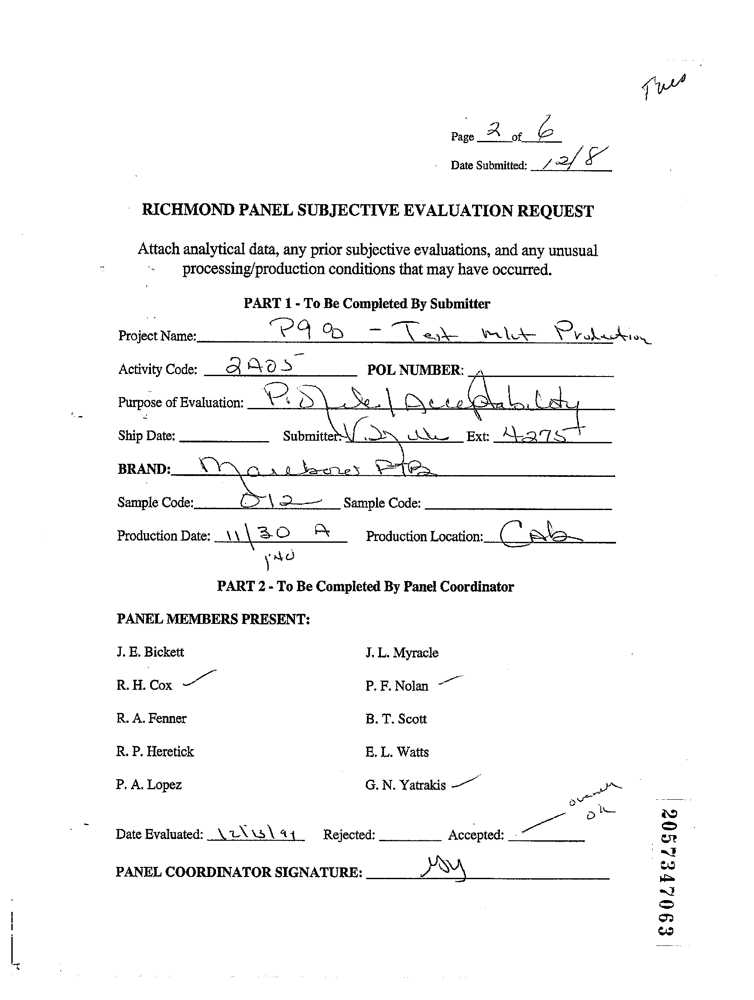 Tues
Page 2 of 6
Date Submitted: 12/8
RICHMOND PANEL SUBJECTIVE EVALUATION REQUEST
Attach analytical data, any prior subjective evaluations, and any unusual
processing/production conditions that may have occurred.
PART 1 - To Be Completed By Submitter
Project Name: - Test mkt Production
Activity Code: 2A05 POL NUMBER:
Purpose of Evaluation: Acceptability
Ship Date: Submitter: Ext: 4275
BRAND:
Sample Code: 012 Sample Code:
Production Date: 11/30 A Production Location: Cab
PART 2 - To Be Completed By Panel Coordinator
PANEL MEMBERS PRESENT:
J. E. Bickett J. L. Myracle
R. H. Cox P. F. Nolan
R. A. Fenner B. T. Scott
R. P. Heretick E. L. Watts
P. A. Lopez G. N. Yatrakis
overall
ok
Date Evaluated: Rejected: Accepted:
PANEL COORDINATOR SIGNATURE:
2057347063